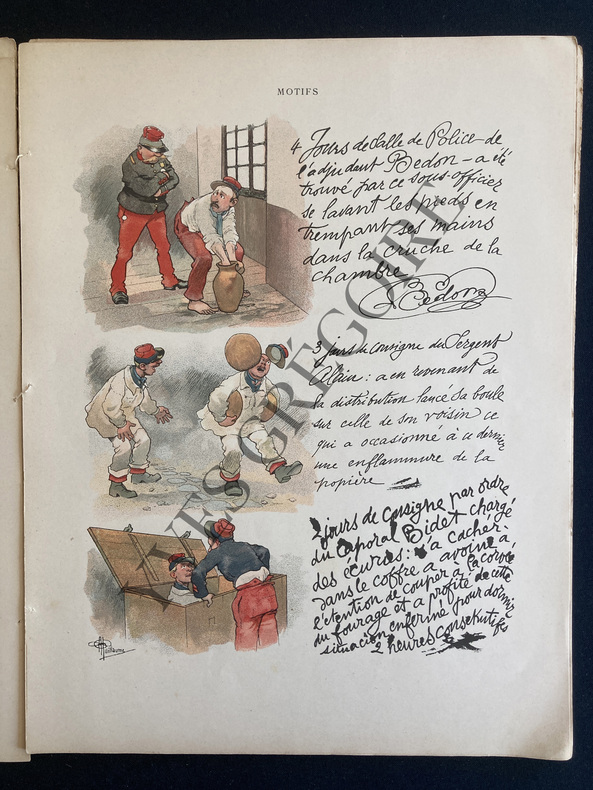 MOTIFS
4 Jours de Salle de Police de
l'adjudant Bedon - a été
trouvé par ce sous-officier
se lavant les pieds en
trempant ses mains
dans la cruche de la
chambre
Bedon
3 jours de consigne du Sergent
Alain : a en revenant de
la distribution lancé sa boule
sur celle de son voisin ce
qui a occasionné à ce dernier
une enflammure de la
popière
2 jours de consigne par ordre
du Caporal Bidet chargé
des écuries: s'a cacher
dans le coffre a avoine a
l'etention de couper à la corvée
du fourage et a profité de cette
situacion enfermé pour dormir
2 heures consekutifs
Guillaume
YVES GRÉGOIRE